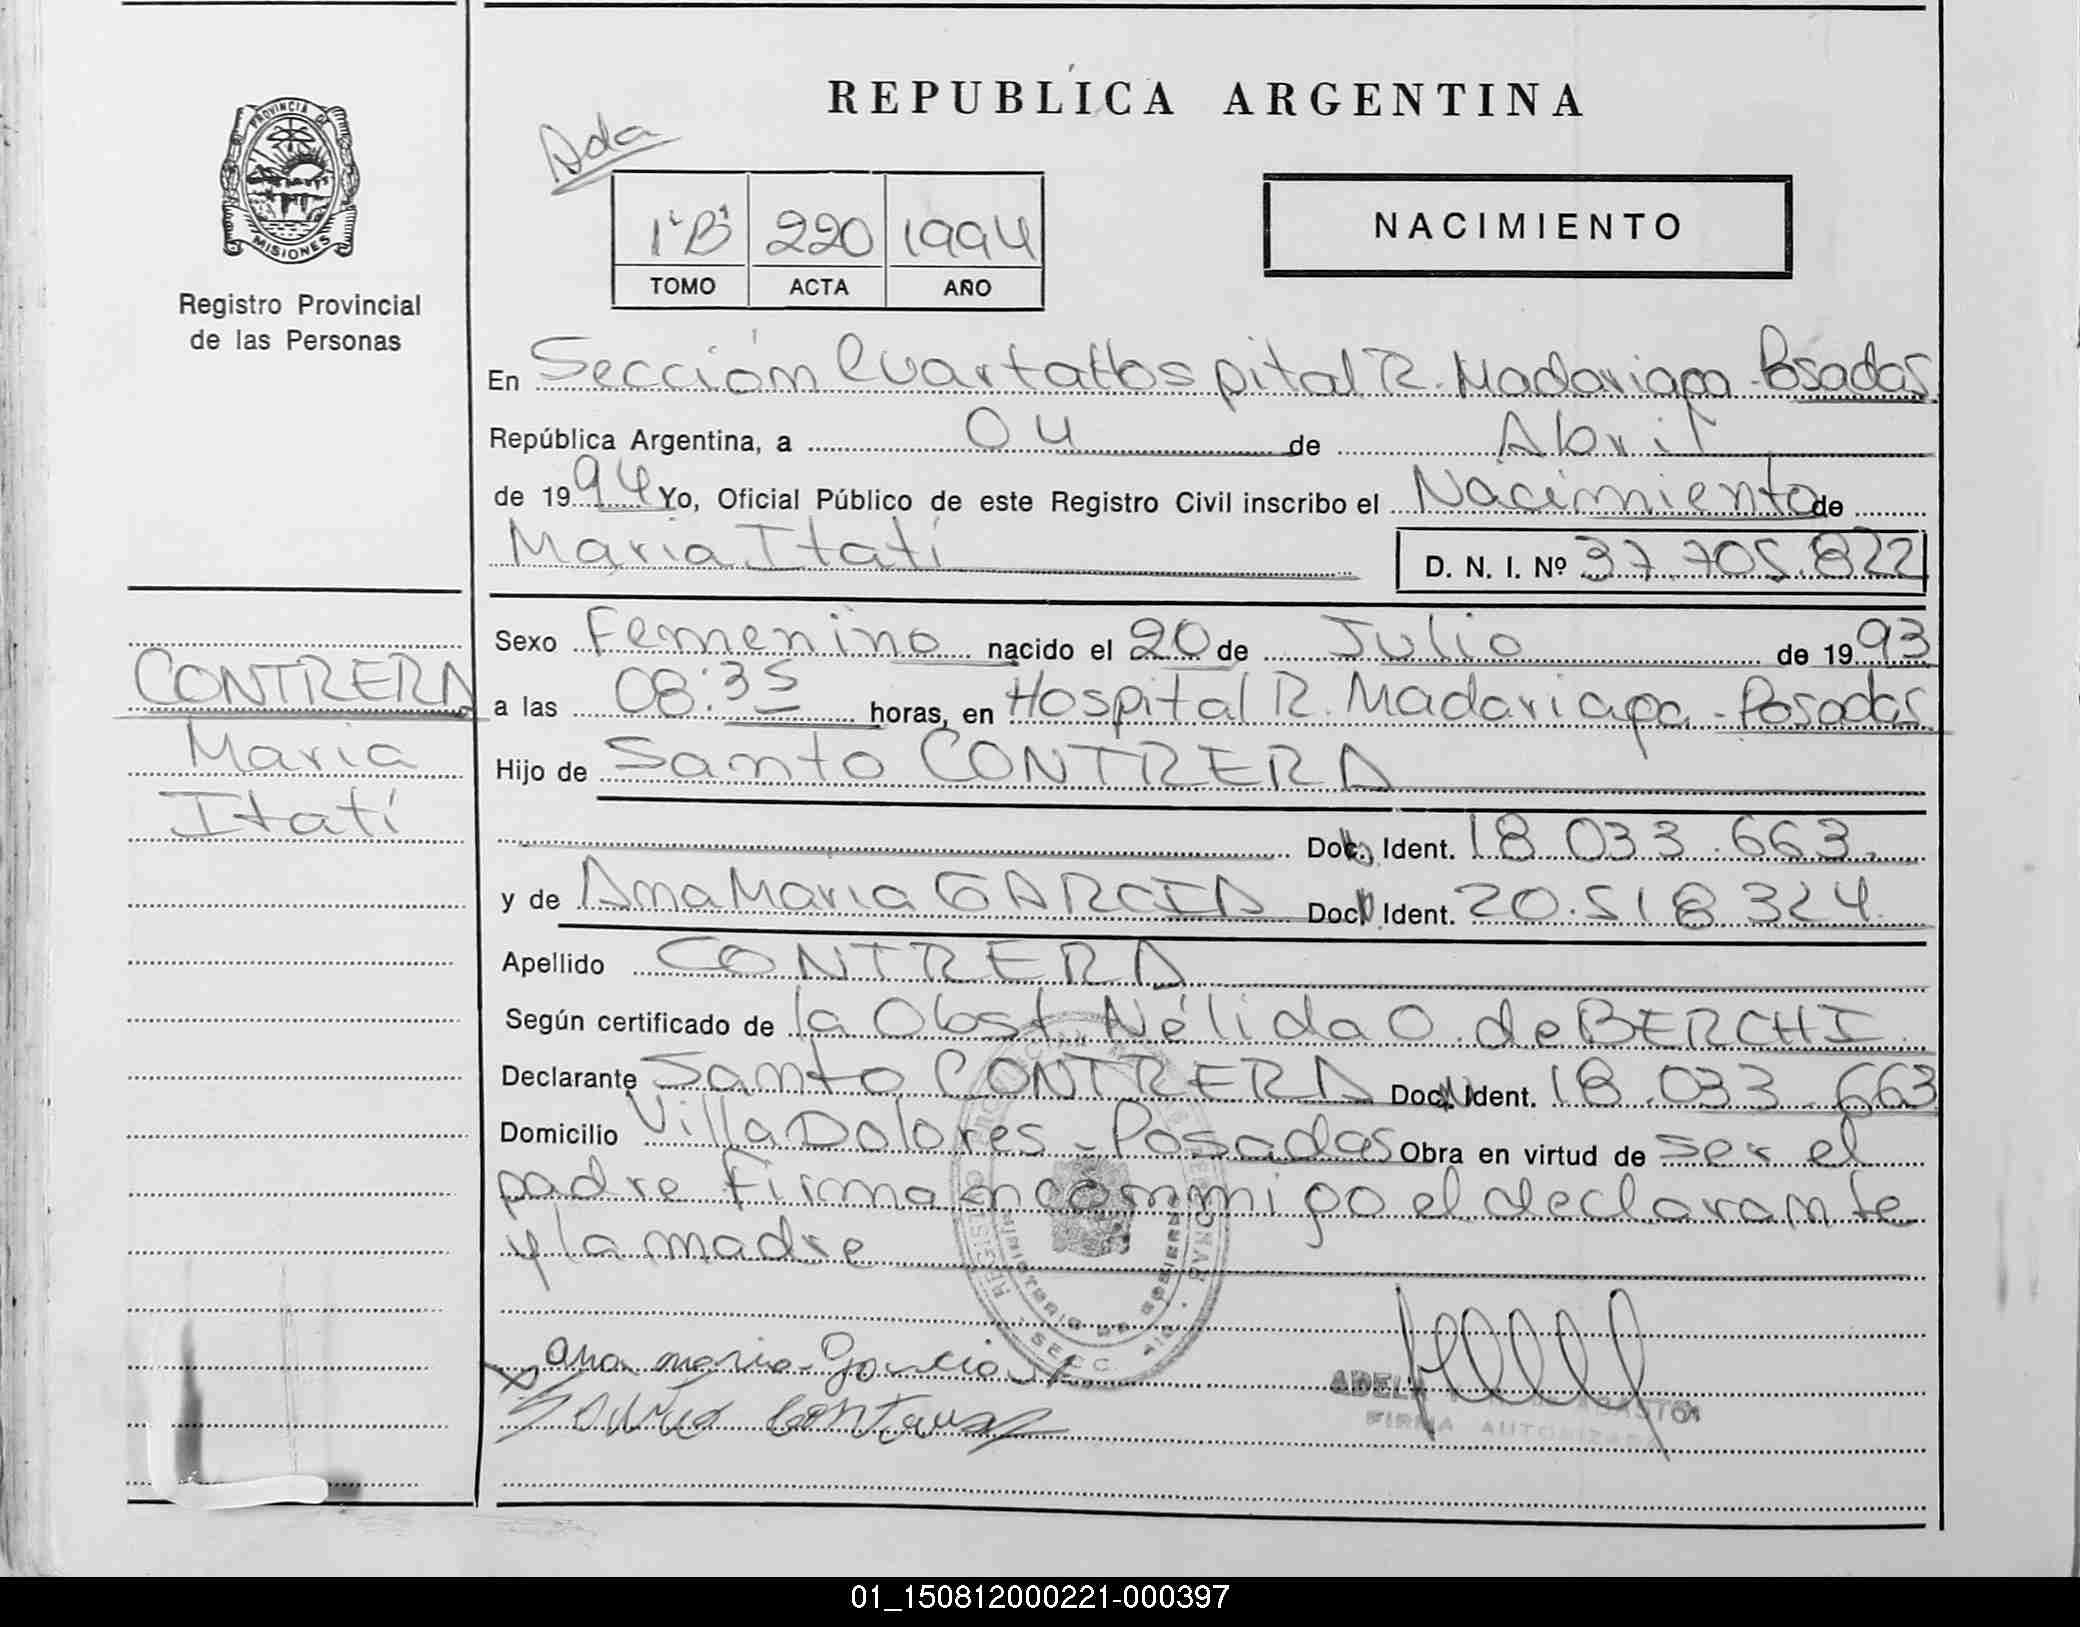 REPUBLICA ARGENTINA
Ada
PROVINCIA DE
MISIONES
Registro Provincial
de las Personas
1º"B" 220 1994
TOMO ACTA AÑO
NACIMIENTO
En Sección Cuarta Hospital R. Madariaga - Posadas
República Argentina, a 04 de Abril
de 1994 Yo, Oficial Público de este Registro Civil inscribo el Nacimiento de
Maria Itatí D. N. I. Nº 37.705.822
Sexo Femenino nacido el 20 de Julio de 1993
CONTRERA
Maria
Itatí
a las 08:35 horas, en Hospital R. Madariaga - Posadas
Hijo de Santo CONTRERA
Doc. Ident. 18.033.663.
y de Ana Maria GARCIA Doc. Ident. 20.518.324.
Apellido CONTRERA
Según certificado de la Obst Nélida O. de BERCHI.
Declarante Santo CONTRERA Doc. Ident. 18.033.663
Domicilio Villa Dolores - Posadas Obra en virtud de ser el
padre Firman conmigo el declarante
y la madre
MINISTERIO DE GOBIERNO
SECC. 4ta
Ana maria Garcia
FIRMA AUTORIZADA
01_150812000221-000397